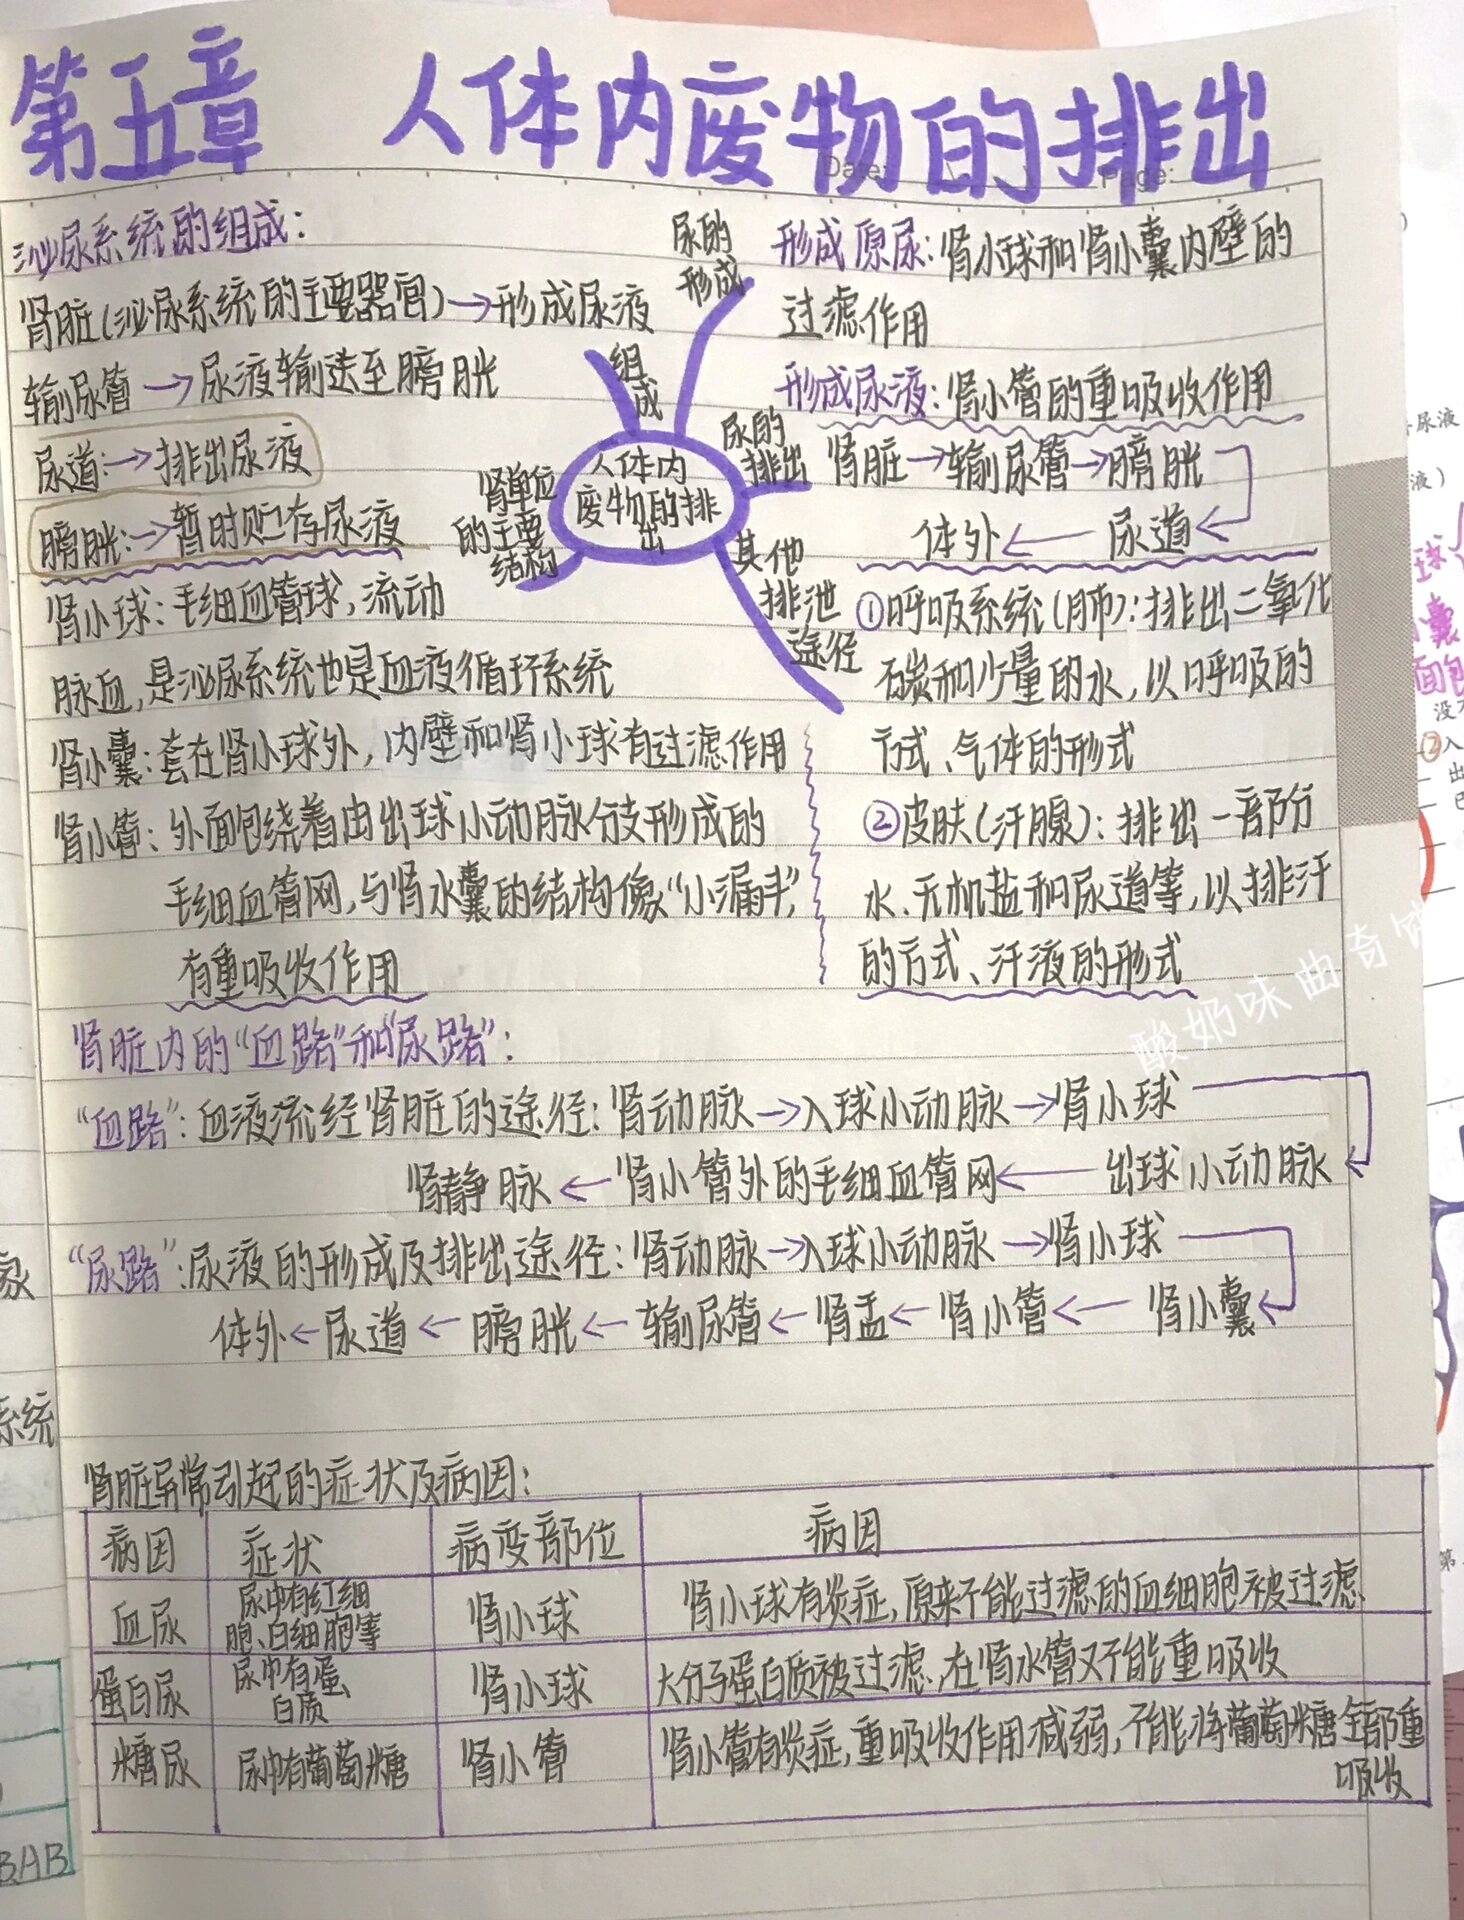 第五章 人体内废物的排出
Date:
Page:
泌尿系统的组成:
肾脏(泌尿系统的主要器官)→形成尿液
输尿管→尿液输送至膀胱
尿道:→排出尿液
膀胱:→暂时贮存尿液
肾小球:毛细血管球,流动
脉血,是泌尿系统也是血液循环系统
肾小囊:套在肾小球外,内壁和肾小球有过滤作用
肾小管:外面包绕着由出球小动脉分支形成的
毛细血管网,与肾水囊的结构像“小漏斗”,
有重吸收作用
尿的
形成
组
成
尿的
排出
肾单位
的主要
结构
人体内
废物的排
出
其他
排泄
途径
形成原尿:肾小球和肾小囊内壁的
过滤作用
形成尿液:肾小管的重吸收作用
肾脏→输尿管→膀胱
体外←尿道
①呼吸系统(肺):排出二氧化
碳和少量的水,以呼吸的
方式、气体的形式
②皮肤(汗腺):排出一部分
水、无机盐和尿道等,以排汗
的方式、汗液的形式
酸奶味曲奇
肾脏内的“血路”和“尿路”:
“血路”:血液流经肾脏的途径:肾动脉→入球小动脉→肾小球
肾静脉←肾小管外的毛细血管网←出球小动脉
“尿路”:尿液的形成及排出途径:肾动脉→入球小动脉→肾小球
体外←尿道←膀胱←输尿管←肾盂←肾小管←肾小囊
肾脏异常引起的症状及病因:
病因 症状 病变部位 病因
血尿 尿中有红细
胞、白细胞等 肾小球 肾小球有炎症,原来不能过滤的血细胞被过滤
蛋白尿 尿中有蛋
白质 肾小球 大分子蛋白质被过滤,在肾水管又不能重吸收
糖尿 尿中有葡萄糖 肾小管 肾小管有炎症,重吸收作用减弱,不能将葡萄糖全部重
吸收
系统
BAB
尿液
液)
球
囊
面包
②入
出
第